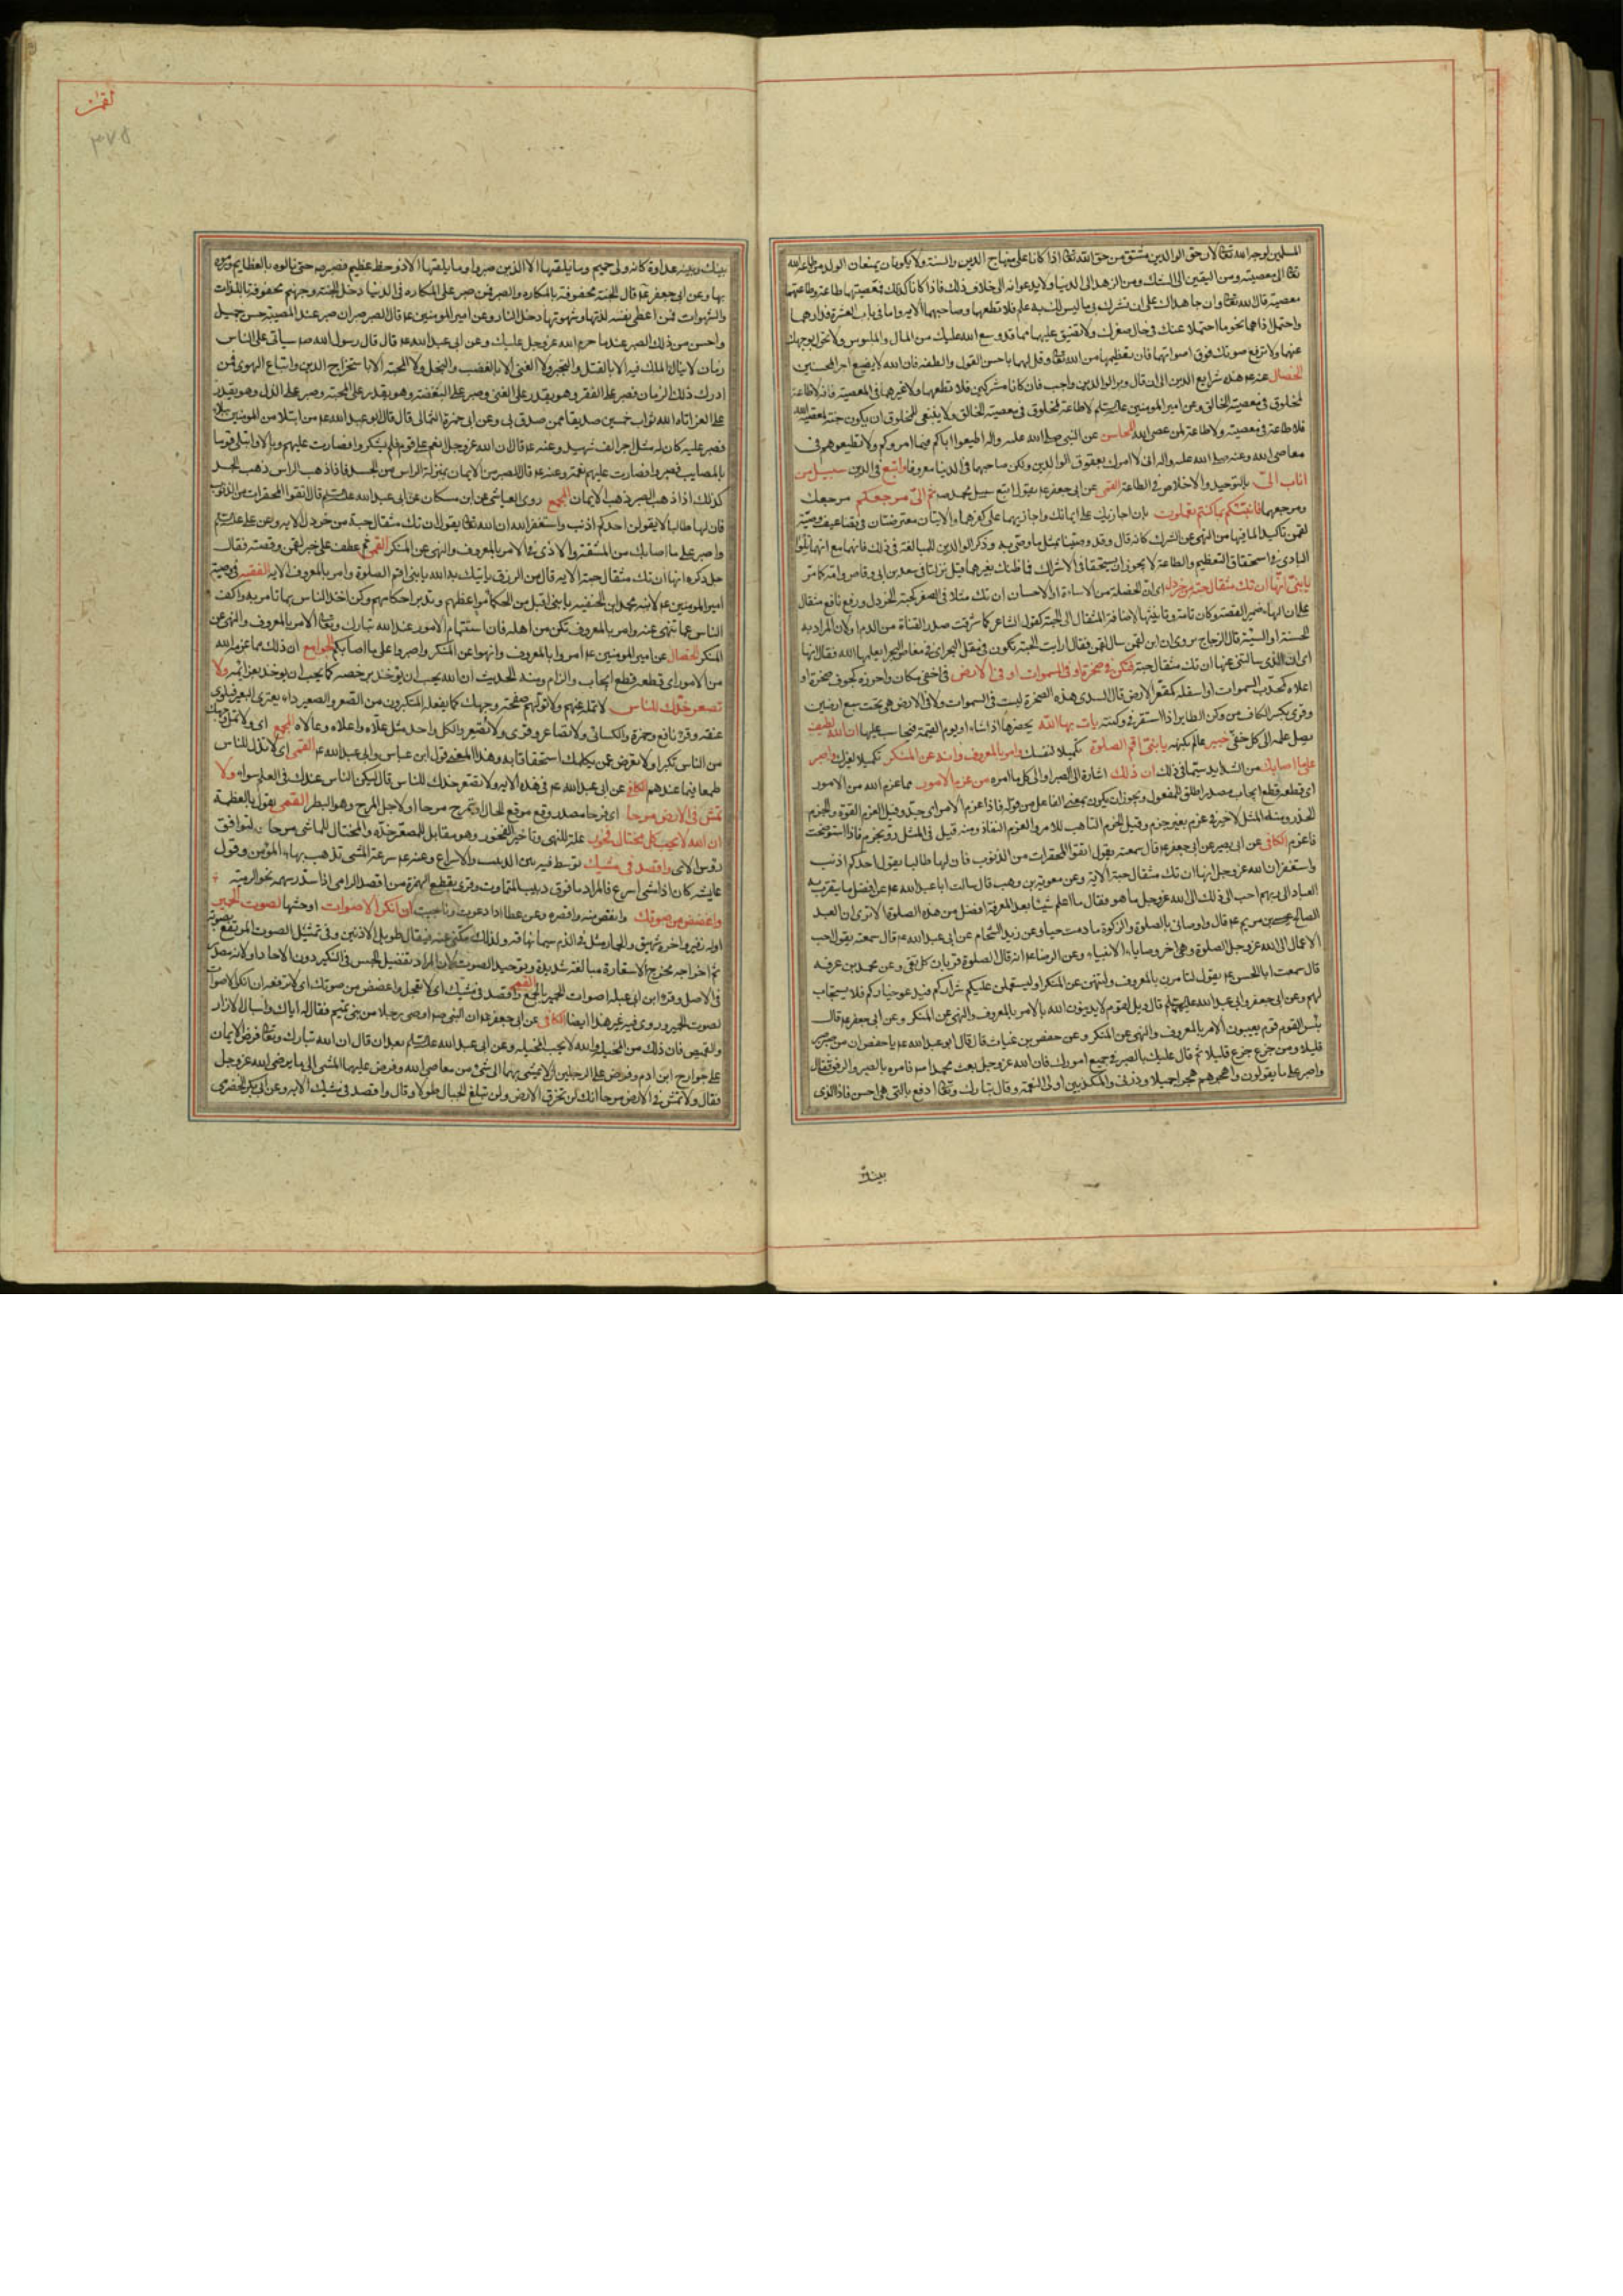 المسلمين لوجه الله تعالى لان حق الوالدين مشتق من حق الله تعالى اذا كانا على منهاج الدين والسنة ولا يكونان يمنعان الولد من طاعة الله
تعالى الى معصيته ومن اليقين الى الشك ومن الزهد الى الدنيا ولا يدعوانه الى خلاف ذلك فاذا كانا كذلك فمعصيتهما طاعة وطاعتهما
معصية قال الله تعالى وان جاهداك على ان تشرك بي ما ليس لك به علم فلا تطعهما وصاحبهما الاية واما في باب العشرة فدارهما
واحتمل اذاهما نحو ما احتملا عنك في حال صغرك ولا تضيق عليهما مما قد وسع الله عليك من المال والملبوس ولا تحول بوجهك
عنهما ولا ترفع صوتك فوق اصواتهما فان تعظيمهما من الله تعالى وقل لهما باحسن القول والطفه فان الله لا يضيع اجر المحسنين
الخصال عنه ع هذه شرايع الدين الى ان قال وبر الوالدين واجب فان كانا مشركين فلا تطعهما ولا غيرهما في المعصية فانه لا طاعة
لمخلوق في معصية الخالق وعن امير المؤمنين عليه السلام لا طاعة لمخلوق في معصية الخالق ولا ينبغي للمخلوق ان يكون حبه لمعصية الله
فلا طاعة في معصيته ولا طاعة لمن عصى الله المحاسن عن النبي صلى الله عليه واله اطيعوا اباكم فيما امروكم ولا تطيعوهم في
معاصي الله وعنه صلى الله عليه واله اني لا امرك بعقوق الوالدين ولكن صاحبهما في الدنيا معروفا واتبع في الدين سبيل من
اناب الي بالتوحيد والاخلاص في الطاعة القمي عن ابي جعفر ع يقول اتبع سبيل محمد ص ثم الي مرجعكم مرجعك
ومرجعهما فانبئكم بما كنتم تعملون بان اجازيك على ايمانك واجازيهما على كفرهما والايتان معترضتان في تضاعيف وصية
لقمن تاكيدا لما فيها من النهي عن الشرك كانه قال وقد وصينا بمثل ما وصى به وذكر الوالدين للمبالغة في ذلك فانهما مع انهما تلو
الباري في استحقاق التعظيم والطاعة لا يجوز ان يستحقا في الاشراك فما ظنك بغيرهما قيل نزلتا في سعد بن ابي وقاص وامه كما مر
يا بني انها ان تك مثقال حبة من خردل اي ان الخصلة من الاساءة او الاحسان ان تك مثلا في الصغر كحبة الخردل ورفع نافع مثقال
على ان الهاء ضمير القصة وكان تامة وتانيثها لاضافة المثقال الى الحبة كقول الشاعر كما شرقت صدر القناة من الدم او لان المراد به
الحسنة او السيئة قال الزجاج روي ان ابن لقمن سال لقمن فقال ارايت الحبة تكون في مقل البحر اي في مغاص البحر ايعلمها الله فقال انها
اي ان الذي سالتني عنها ان تك مثقال حبة فتكن في صخرة او في السموات او في الارض في اخفى مكان واحرزه كجوف صخرة او
اعلاه كمحدب السموات او اسفله كمقعر الارض قال السدي هذه الصخرة ليست في السموات ولا في الارض هي تحت سبع ارضين
وقرئ بكسر الكاف من وكن الطاير اذا استقر في وكنته يات بها الله يحضرها اذا شاء او يوم القيمة فيحاسب عليها ان الله لطيف
يصل علمه الى كل خفي خبير عالم بكنهه يا بني اقم الصلوة تكميلا لنفسك وامر بالمعروف وانه عن المنكر تكميلا لغيرك واصبر
على ما اصابك من الشدايد سيما في ذلك ان ذلك اشارة الى الصبر او الى كل ما امره من عزم الامور مما عزم الله من الامور
اي قطعه قطع ايجاب مصدر اطلق للمفعول ويجوز ان يكون بمعنى الفاعل من قوله فاذا عزم الامر اي جد وقيل العزم القوة والحزم
الحذر ومنه المثل لا خير في عزم بغير حزم وقيل الحزم التاهب للامر والعزم النفاذ ومنه قيل في المثل رو بحزم فاذا استوضحت
فاعزم الكافي عن ابي بصير عن ابي جعفر ع قال سمعته يقول اتقوا المحقرات من الذنوب فان لها طالبا يقول احدكم اذنب
واستغفر ان الله عز وجل انها ان تك مثقال حبة الاية وعن معوية بن وهب قال سالت ابا عبد الله ع عن افضل ما يتقرب به
العباد الى ربهم احب الى ذلك الى الله عز وجل ما هو فقال ما اعلم شيئا بعد المعرفة افضل من هذه الصلوة الا ترى ان العبد
الصالح عيسى بن مريم ع قال واوصاني بالصلوة والزكوة ما دمت حيا وعن زيد الشحام عن ابي عبد الله ع قال سمعته يقول احب
الاعمال الى الله عز وجل الصلوة وهي اخر وصايا الانبياء وعن الرضا ع انه قال الصلوة قربان كل تقي وعن محمد بن عرفه
قال سمعت ابا الحسن ع يقول لتامرن بالمعروف ولتنهن عن المنكر او ليستعملن عليكم شراركم فيدعو خياركم فلا يستجاب
لهم وعن ابي جعفر وابي عبد الله عليهما السلام قال ويل لقوم لا يدينون الله بالامر بالمعروف والنهي عن المنكر وعن ابي جعفر ع قال
بئس القوم قوم يعيبون الامر بالمعروف والنهي عن المنكر وعن حفص بن غياث قال قال ابو عبد الله ع يا حفص ان من صبر صبر
قليلا ومن جزع جزع قليلا ثم قال عليك بالصبر في جميع امورك فان الله عز وجل بعث محمدا ص فامره بالصبر والرفق فقال
واصبر على ما يقولون واهجرهم هجرا جميلا وذرني والمكذبين اولي النعمة وقال تبارك وتعالى ادفع بالتي هي احسن فاذا الذي
بينك
لقمان
٣٧٥
بينك وبينه عداوة كانه ولي حميم وما يلقيها الا الذين صبروا وما يلقيها الا ذو حظ عظيم فصبر ص حتى نالوه بالعظايم ورموه
بها وعن ابي جعفر ع قال الجنة محفوفة بالمكاره والصبر فمن صبر على المكاره في الدنيا دخل الجنة وجهنم محفوفة باللذات
والشهوات فمن اعطى نفسه لذتها وشهوتها دخل النار وعن امير المؤمنين ع قال الصبر صبران صبر عند المصيبة حسن جميل
واحسن من ذلك الصبر عند ما حرم الله عز وجل عليك وعن ابي عبد الله ع قال قال رسول الله ص سياتي على الناس
زمان لا ينال الملك فيه الا بالقتل والتجبر ولا الغنى الا بالغصب والبخل ولا المحبة الا باستخراج الدين واتباع الهوى فمن
ادرك ذلك الزمان فصبر على الفقر وهو يقدر على الغنى وصبر على البغضة وهو يقدر على المحبة وصبر على الذل وهو يقدر
على العز اتاه الله ثواب خمسين صديقا ممن صدق بي وعن ابي حمزة الثمالي قال قال ابو عبد الله ع من ابتلا من المؤمنين ببلاء
فصبر عليه كان له مثل اجر الف شهيد وعنه ع قال ان الله عز وجل انعم على قوم فلم يشكروا فصارت عليهم وبالا وابتلى قوما
بالمصايب فصبروا فصارت عليهم نعمة وعنه ع قال الصبر من الايمان بمنزلة الراس من الجسد فاذا ذهب الراس ذهب الجسد
كذلك اذا ذهب الصبر ذهب الايمان المجمع روى العياشي عن ابن مسكان عن ابي عبد الله عليه السلام قال اتقوا المحقرات من الذنوب
فان لها طالبا لا يقولن احدكم اذنب واستغفر الله ان الله تعالى يقول ان تك مثقال حبة من خردل الاية وعن علي عليه السلام
واصبر على ما اصابك من المشقة والاذى في الامر بالمعروف والنهي عن المنكر القمي ثم عطف على خبر لقمن وقصته فقال
جل ذكره انها ان تك مثقال حبة الاية قال من الرزق ياتيك به الله يا بني اقم الصلوة وامر بالمعروف الاية الفقيه في وصية
امير المؤمنين ع لابنه محمد ابن الحنفيه يا بني اقبل من الحكماء مواعظهم وتدبر احكامهم وكن اخذ الناس بما تامر به واكف
الناس عما تنهى عنه وامر بالمعروف تكن من اهله فان استتمام الامور عند الله تبارك وتعالى الامر بالمعروف والنهي عن
المنكر الخصال عن امير المؤمنين ع امروا بالمعروف وانهوا عن المنكر واصبروا على ما اصابكم الجوامع ان ذلك مما عزمه الله
من الامور اي قطعه قطع ايجاب والزام ومنه الحديث ان الله يحب ان يؤخذ برخصه كما يحب ان يؤخذ بعزائمه ولا
تصعر خدك للناس لا تمله عنهم ولا تولهم صفحة وجهك كما يفعله المتكبرون من الصعر والصعير داء يعتري البعير فيلوي
عنقه وقرء نافع وحمزة والكسائي ولا تصاعر وقرئ ولا تصعر والكل واحد مثل علاه واعلاه وعالاه المجمع اي ولا تمل وجهك
من الناس تكبرا ولا تعرض عمن يكلمك استخفافا به وهذا المعنى قول ابن عباس وابي عبد الله ع القمي اي لا تذل للناس
طمعا فيما عندهم الكافي عن ابي عبد الله ع في هذه الاية ولا تصعر خدك للناس قال ليكن الناس عندك في العلم سواء ولا
تمش في الارض مرحا اي فرحا مصدر وقع موقع الحال او تمرح مرحا او لاجل المرح وهو البطر القمي يقول بالعظمة
ان الله لا يحب كل مختال فخور علة للنهي وتاخير الفخور وهو مقابل للمصعر خده والمختال للماشي مرحا ليوافق
رؤس الاي واقصد في مشيك توسط فيه بين الدبيب والاسراع وعنه ع سرعة المشي تذهب ببهاء المؤمن وقول
عايشه كان اذا مشى اسرع فالمراد ما فوق دبيب المتماوت وقرئ بقطع الهمزة من اقصد الرامي اذا سدد سهمه نحو الرمية
واغضض من صوتك وانقص منه واقصره ان انكر الاصوات اوحشها لصوت الحمير
اوله زفير واخره شهيق والحمار مثل في الذم سيما نهاقه ولذلك يكنى عنه فيقال طويل الاذنين وفي تمثيل الصوت المرتفع بصوته
ثم اخراجه مخرج الاستعارة مبالغة شديدة وتوحيد الصوت لان المراد تفضيل الجنس في النكير دون الاحاد او لانه مصدر
في الاصل وقرء ابن ابي عبلة اصوات الحمير بالجمع القمي واقصد في مشيك اي لا تعجل واغضض من صوتك اي لا ترفعه ان انكر الاصوات
لصوت الحمير وروي فيه غير هذا ايضا الكافي عن ابي جعفر ع ان النبي ص اوصى رجلا من بني تميم فقال له اياك واسبال الازار
والقميص فان ذلك من المخيلة والله لا يحب المخيلة وعن ابي عبد الله عليه السلام بعد ان قال ان الله تبارك وتعالى فرض الايمان
على جوارح ابن ادم وفرض على الرجلين الا يمشي بهما الى شيء من معاصي الله وفرض عليهما المشي الى ما يرضي الله عز وجل
فقال ولا تمش في الارض مرحا انك لن تخرق الارض ولن تبلغ الجبال طولا وقال واقصد في مشيك الاية وعن ابي بكر الحضرمي